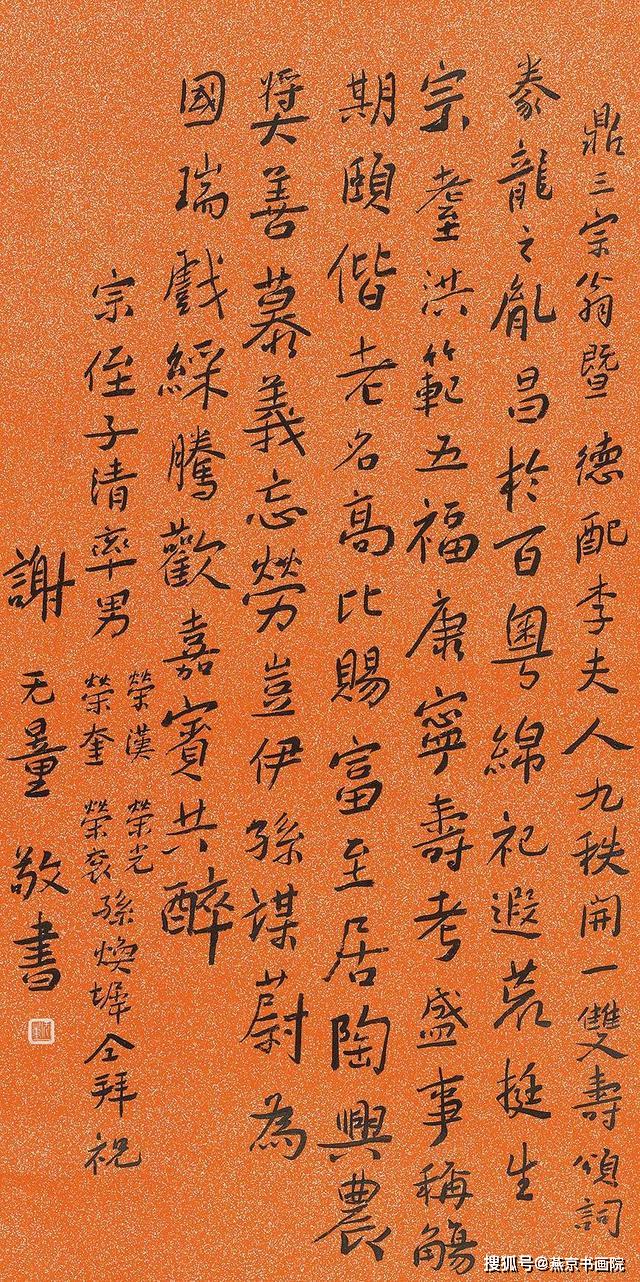 鼎三宗翁暨德配李夫人九秩開一雙壽頌詞
豢龍之胤昌於百粵綿祀遐荒挺生
宗耋洪範五福康寧壽考盛事稱觴
期頤偕老名高比賜富至居陶興農
獎善慕義忘勞豈伊孫謀蔚為
國瑞戲綵騰歡嘉賓共醉
宗侄子清率男
榮漢 榮光
榮奎 榮衮
孫煥墀仝拜祝
謝无量敬書
搜狐号@燕京书画院